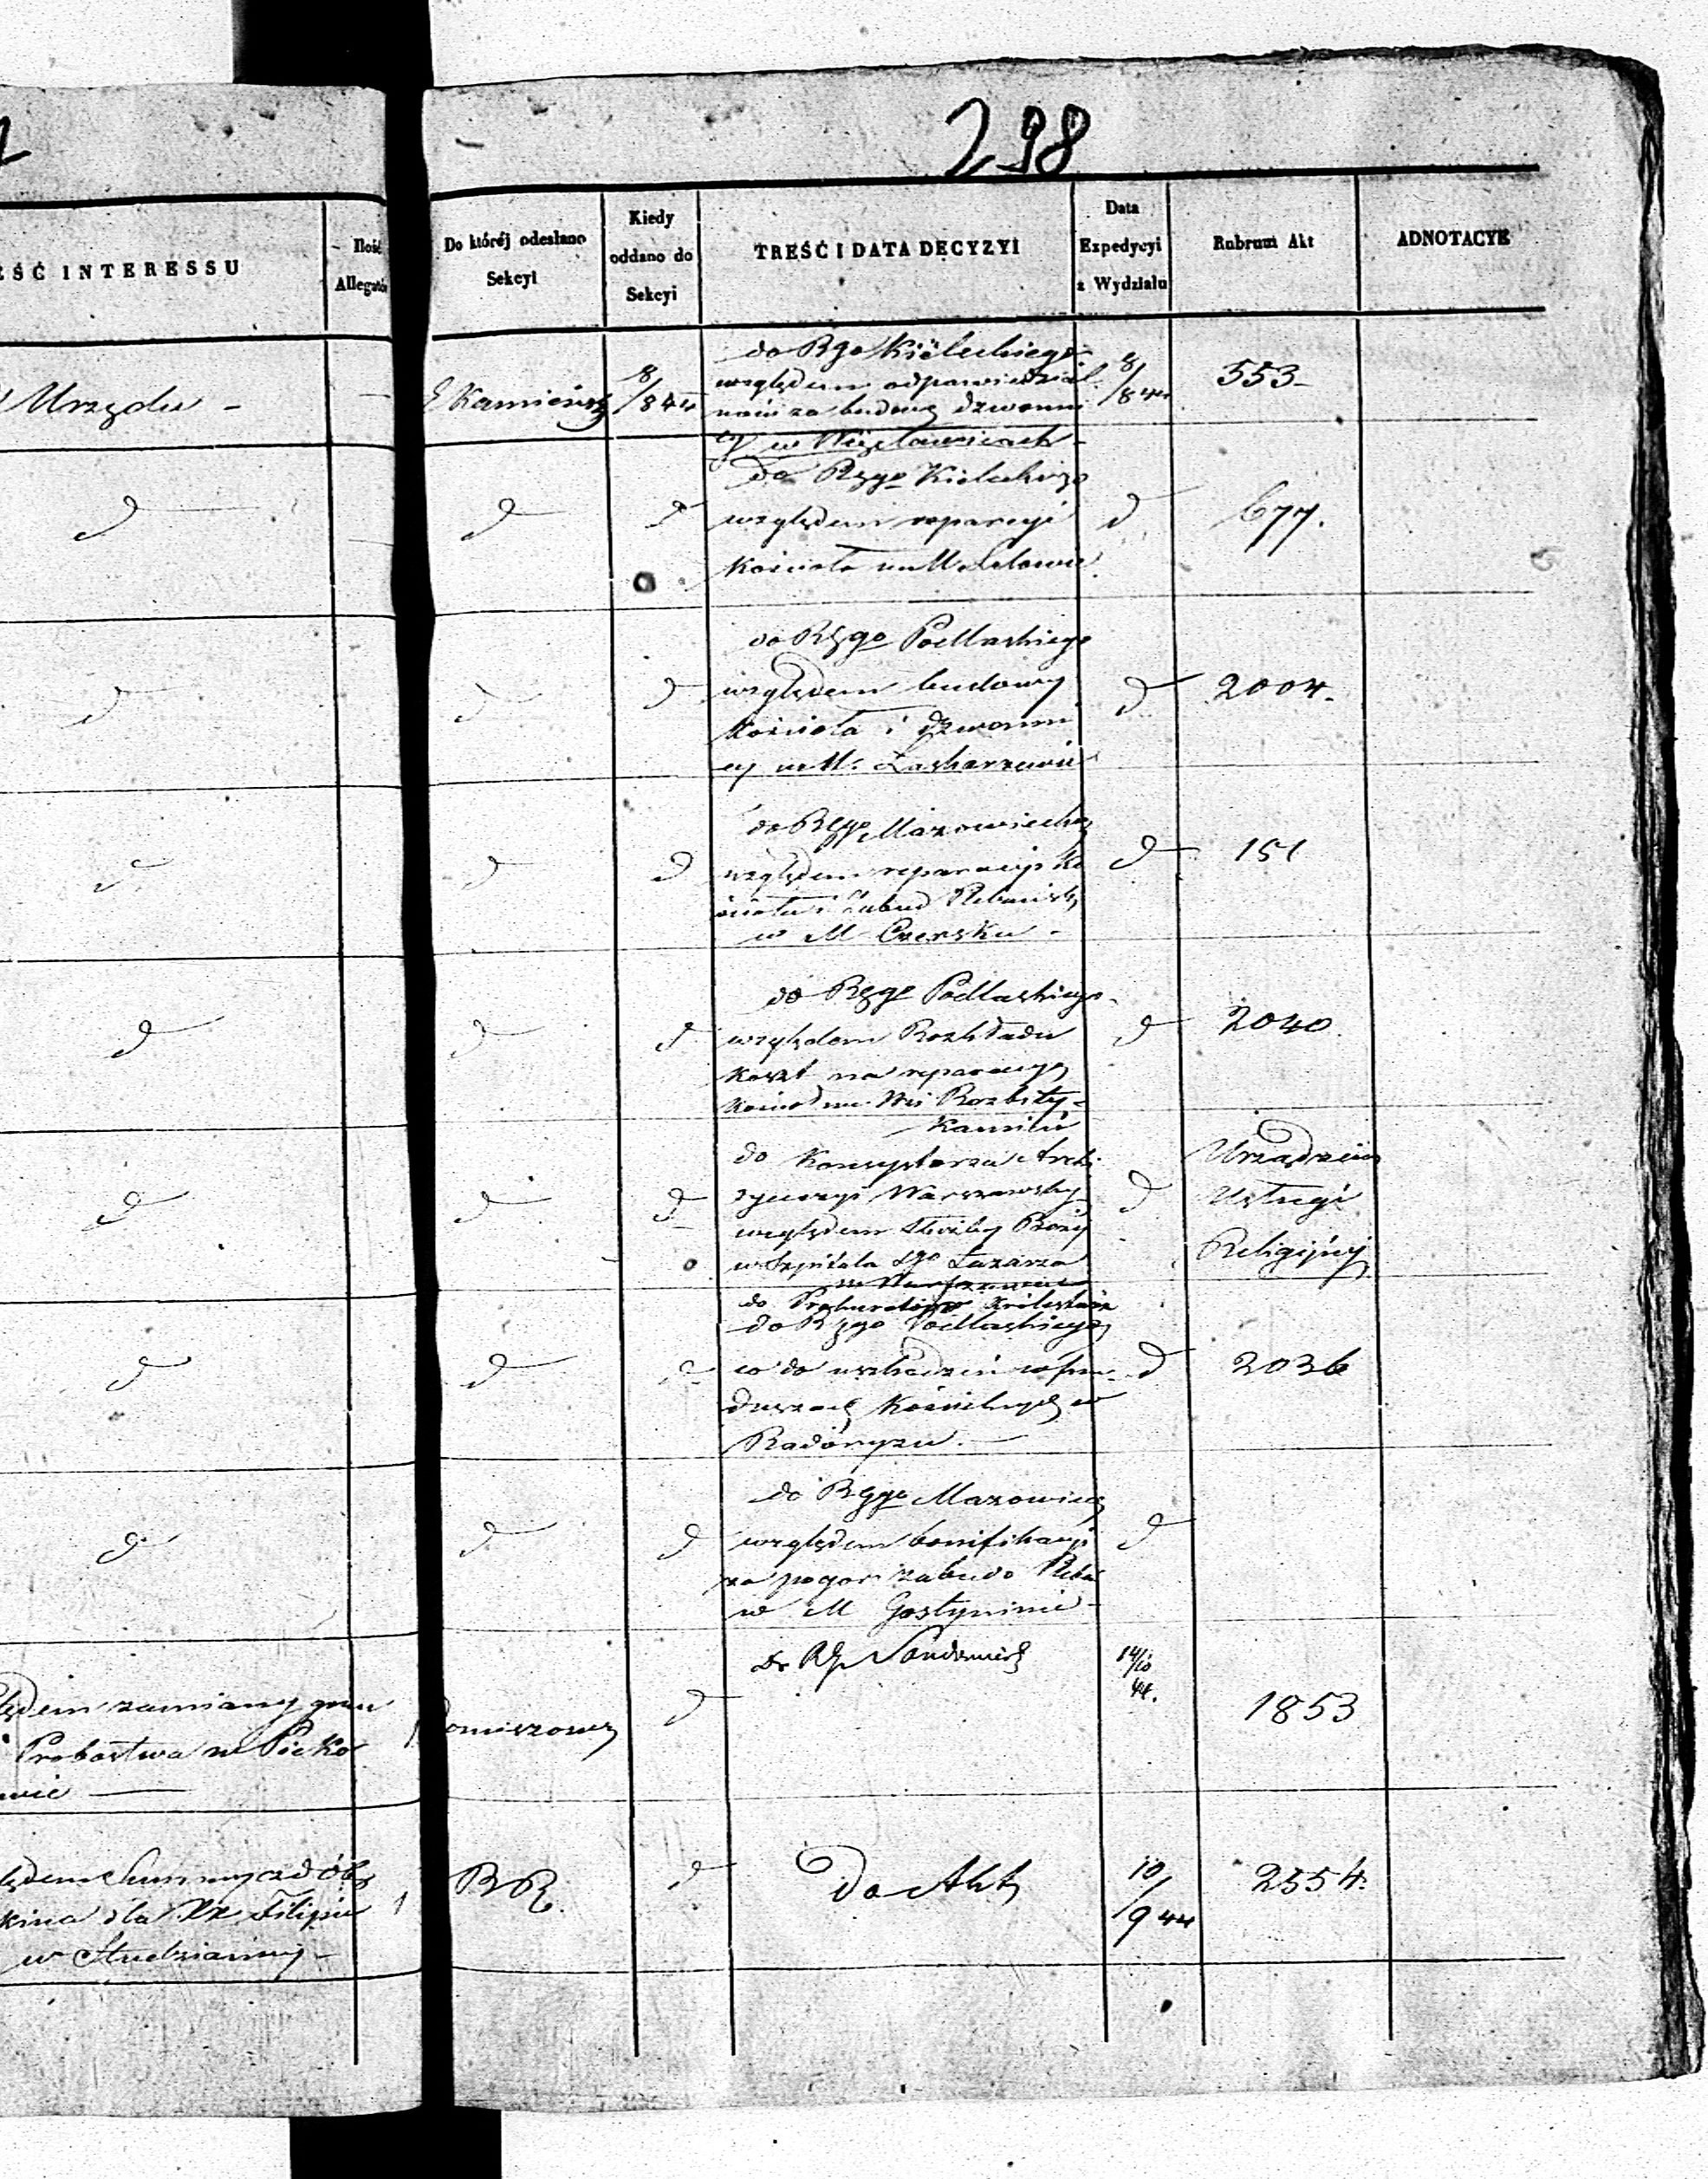 298
ŚĆ INTERESSU
Ilość
Allegatów
Do któréj odesłano
Sekcyi
Kiedy
oddano do
Sekcyi
TREŚĆ I DATA DECYZYI
Data
Expedycyi
z Wydziału
Rubrum Akt
ADNOTACYE
Urzędu -
Kamieński
8/8 44
do Rgo Kieleckiego
względem odpowiedzial
ności za budowę dzwonni
cy w Więcławicach -
8/8 44
553
d
d
d
do Rzgo Kieleckiego
względem reparacyi
Kościoła w M Lelowie
d
677.
d
d
d
do Rzgo Podlaskiego
względem budowy
Kościoła i dzwonni
cy w M. Łaskarzewie
d
2004.
d
d
d
do Rzgo Mazowieckie
względem reparacyi Ko
ścioła i Zabud Plebański
w M Czersku -
d
151
d
d
d
do Rzgo Podlaskiego
względem Rozkładu
koszt na reparacyą
kościoł we Wsi Rozbity-
Kamień
d
2040
d
d
d
do Konsystorza Archi
dyecezyi Warszawsky
względem Służby Bożey
w Szpitala Sgo Łazarza
w Warszawie
d
Urządzenie
Usługi
Religijnéj
d
d
d
do Prokuratoryi Królestwa
do Rzgo Podlaskiego
co do uszkodzeń w fun
duszach Kościelnych w
Radoryżu. -
d
2036
d
d
d
do Rzgo Mazowiec
względem bonifikacyi
za pogor zabudo Pleba
w M Gostyninie -
d
ględem zamiany gru
Probostwa w
wie -
d
do Rzgo Sandomiersk
14/10
44.
1853
ględem Summy z dób
dla XX. Filipi
w Studzianny -
1
BR.
d
Do Akt
10/9 44
2554.